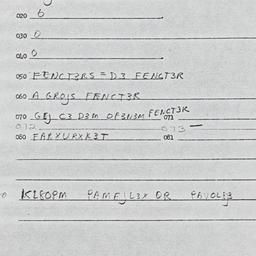 020 6
030 0
040 0
050 FENCT3RS = D3 FENGT3R
060 A GROJS FENCT3R
070 GEJ C3 D3M OF3N3M FENCT3R
072 073 —
080 081
KL8OPM PAMFJL3X OR PAVOL83